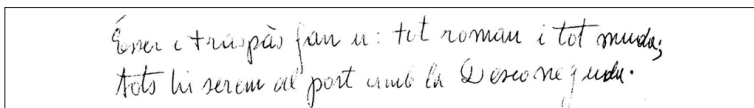 Ésser i traspàs fan u: tot roman i tot muda;
Tots hi serem al port amb la Desconeguda.